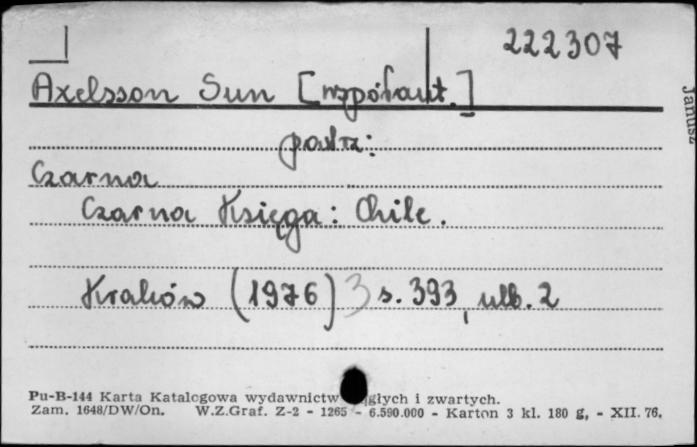 222307
Axelsson Sun [współaut.]
patrz:
Czarna
Czarna Księga: Chile.
Kraków (1976) 3 s. 393, nlb. 2
Pu-B-144 Karta Katalogowa wydawnictw głych i zwartych.
Zam. 1648/DW/On. W.Z.Graf. Z-2 - 1265 - 6.590.000 - Karton 3 kl. 180 g, - XII. 76.
Janusz